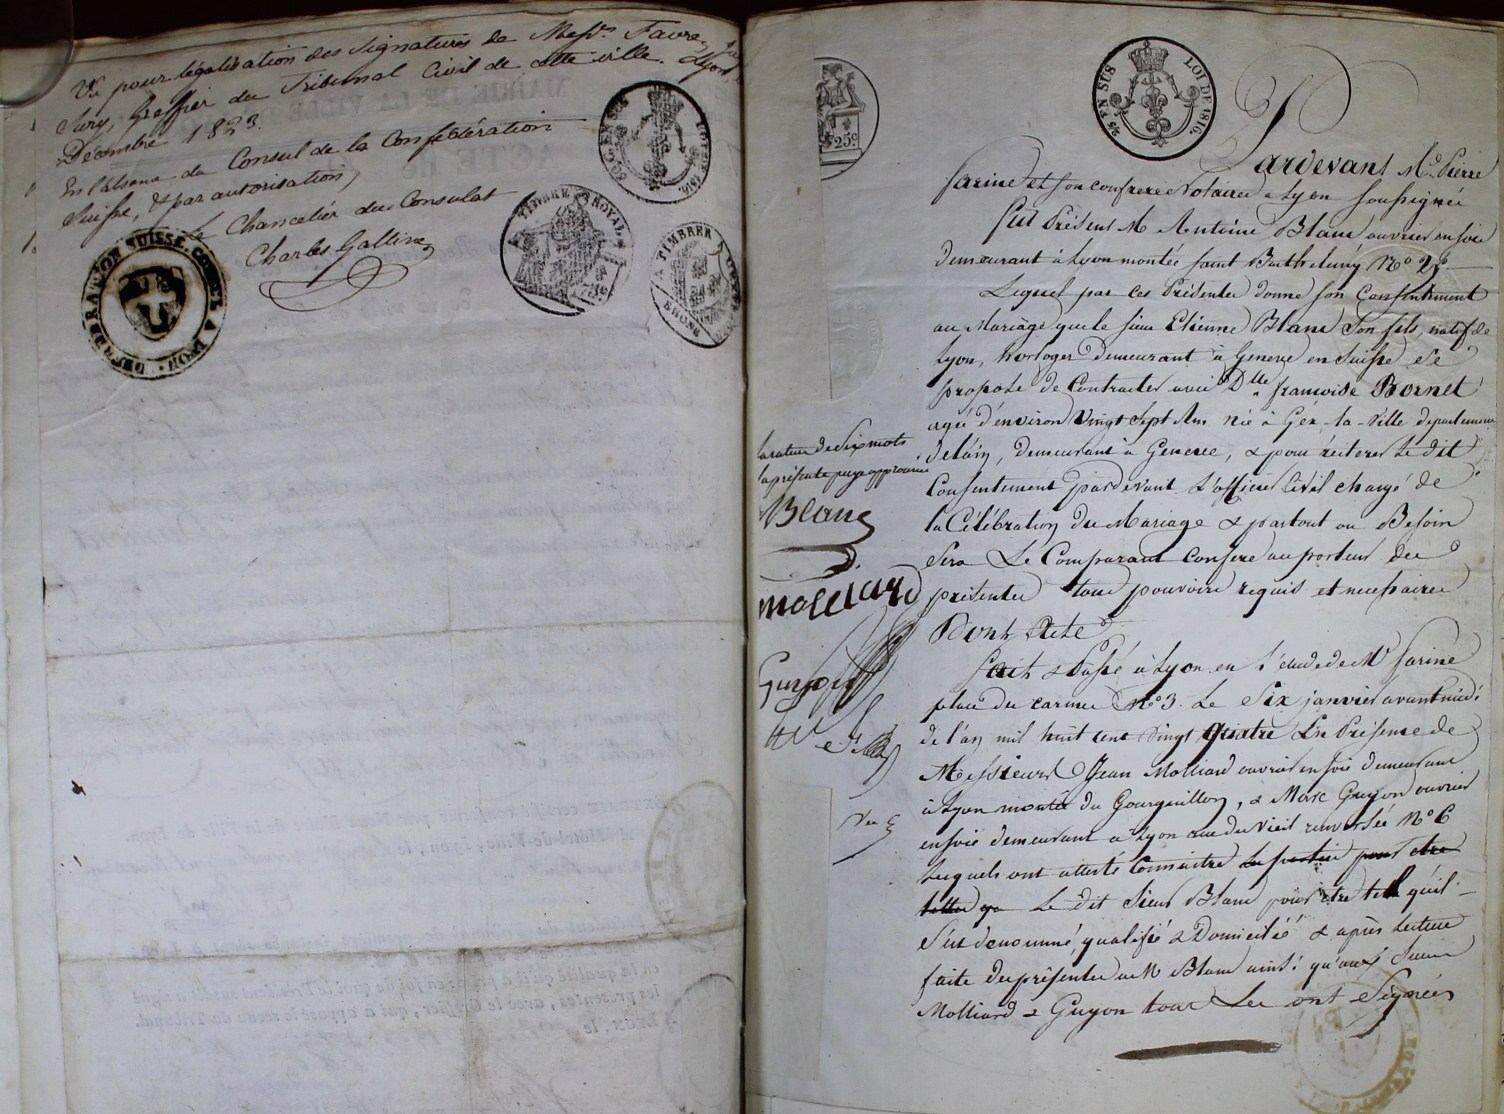 Vu pour légalisation des Signatures de Messrs Favre
Sury, Greffier du Tribunal Civil de cette ville. Lyon
Décembre 1823.
En l'absence du Consul de la Confédération
Suisse, & par autorisation,
Le Chancelier du Consulat
Charles Galline
CONFEDERATION SUISSE. CONSUL A LYON
EN SUS LOI DE 1816.
TIMBRE ROYAL
A TIMBRER
RHÔNE
25c.
EN SUS LOI DE 1816.
Pardevant Me Pierre
farine et son confrere Notaires a Lyon soussignés
fut Présent M Antoine Blanc ouvrier en soie
demeurant à Lyon montée saint Barthelemy No
Lequel par ces Présentes donne son Consentement
au Mariage que le sieur Etienne Blanc son fils, natif de
Lyon, horloger demeurant à Geneve en Suisse se
propose de Contracter avec Dlle francoise Bornet
agée d'environ vingt sept Ans née à Gex-la-Ville departement
delain, demeurant à Geneve, & pour réiterer le dit
Consentement pardevant L'officier Civil chargé de
la Célébration du Mariage & partout ou Besoin
sera Le Comparant confere au porteur des
présentes tous pouvoirs requis et necessaires
Dont Acte
fait & Passé à Lyon en l'étude de Me farine
place des carmes No 3. Le Six janvier avant midi
de l'an mil huit cent vingt quatre En Présence de
Messieurs Jean Molliard ouvrier en soie demeurant
à Lyon montée du Gourguillon, & Marc Guyon ouvrier
en soie demeurant a Lyon rue du Vieil renversée No 6
Lesquels ont attesté Connaitre les parties pour etre
telles qu Le dit Sieur Blanc pour etre tel qu'il
s'est denommé, qualifié & Domicilié & après lecture
faite des présentes a M Blanc ainsi qu'aux Sieurs
Molliard & Guyon tous Les ont Signées
la rature de Six mots
la présente page approuvée
Blanc
molliard
Guyon
Vu